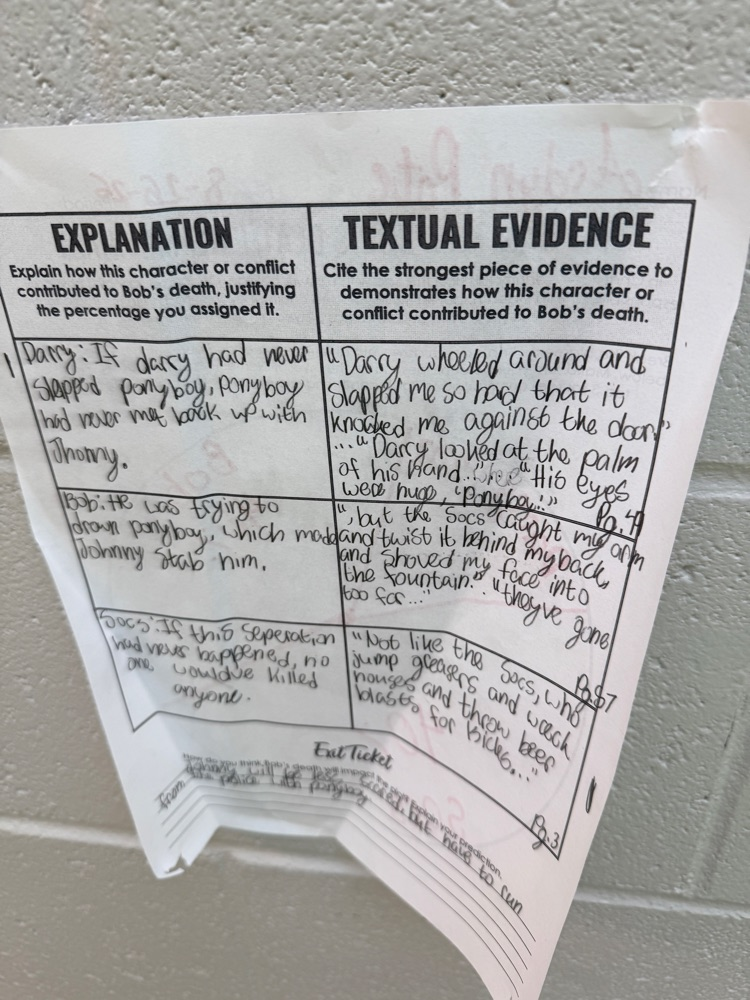 EXPLANATION
Explain how this character or conflict
contributed to Bob's death, justifying
the percentage you assigned it.
TEXTUAL EVIDENCE
Cite the strongest piece of evidence to
demonstrates how this character or
conflict contributed to Bob's death.
Darry: If darry had never
slapped ponyboy, ponyboy
had never met back up with
Jhonny.
"Darry wheeled around and
slapped me so hard that it
knocked me against the door"
..."Darry looked at the palm
of his hand..." "His eyes
were huge, "Ponyboy..."
Pg. 49
Bob: He was trying to
drown ponyboy, which made
Johnny stab him.
", but the Socs caught my arm
and twist it behind my back,
and shoved my face into
the fountain." "they've gone
too far..."
Pg. 87
Socs: If this seperation
had never happened, no
one wouldve killed
anyone.
"Not like the Socs, who
jump greasers and wreck
houses and throw beer
blasts for kicks..."
Pg. 3
Exit Ticket
How do you think Bob's death will impact the plot? Explain your prediction.
Johnny will be less scared, but have to run
from the police with ponyboy